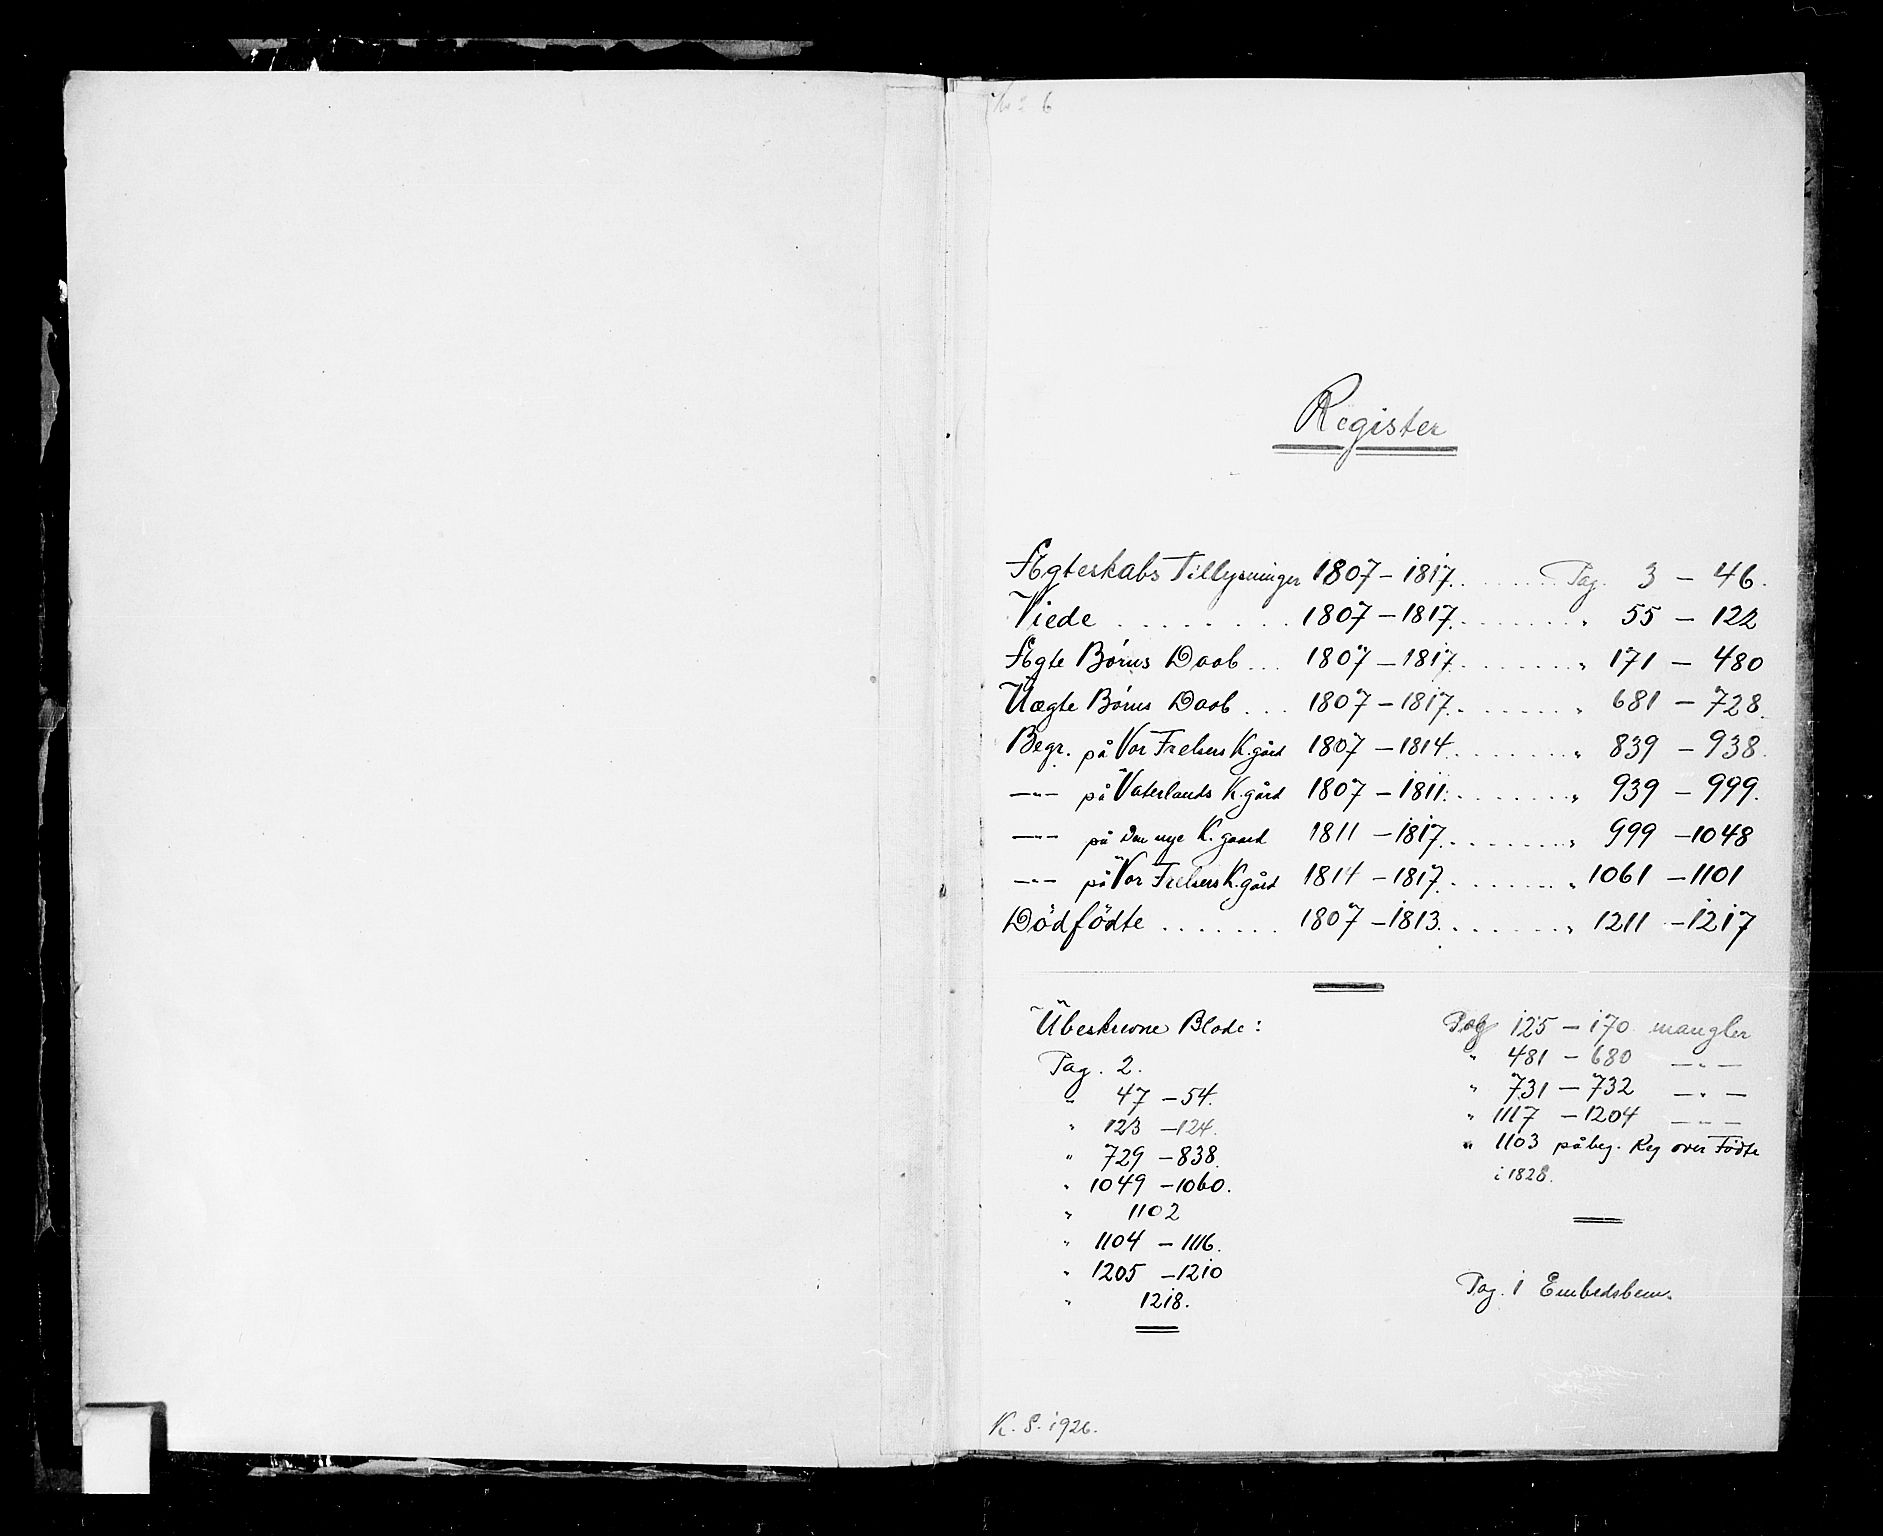 Register
Ægteskabs Tillysninger 1807 – 1817 . . . . . . Pag. 3 – 46.
Viede . . . . . . . . 1807 – 1817 . . . . . . . " 55 – 122
Ægte Börns Daab . . . 1807 – 1817 . . . . . . . " 171 – 480
Uægte Börns Daab . . . 1807 – 1817 . . . . . . . " 681 – 728.
Begr. på Vor Frelsers K.gård 1807 – 1814 . . . . . . . " 839 – 938.
—"— på Vaterlands K.gård 1807 – 1811 . . . . . . . " 939 – 999.
—"— på Den nye K. gaard 1811 – 1817 . . . . . . . " 999 – 1048
—"— på Vor Frelsers K.gård 1814 – 1817 . . . . . . . " 1061 – 1101
Dödfödte . . . . . . . 1807 – 1813 . . . . . . . " 1211 – 1217
Ubeskrevne Blade:
Pag. 2.
" 47 – 54.
" 123 – 124.
" 729 – 838.
" 1049 – 1060.
" 1102
" 1104 – 1116.
" 1205 – 1210
" 1218.
Pag 125 – 170 mangler
" 481 – 680 —"—
" 731 – 732 —"—
" 1117 – 1204 —"—
" 1103 påbeg. Reg over Födte
i 1828.
Pag. 1 Embedsbem.
K. S. 1926.